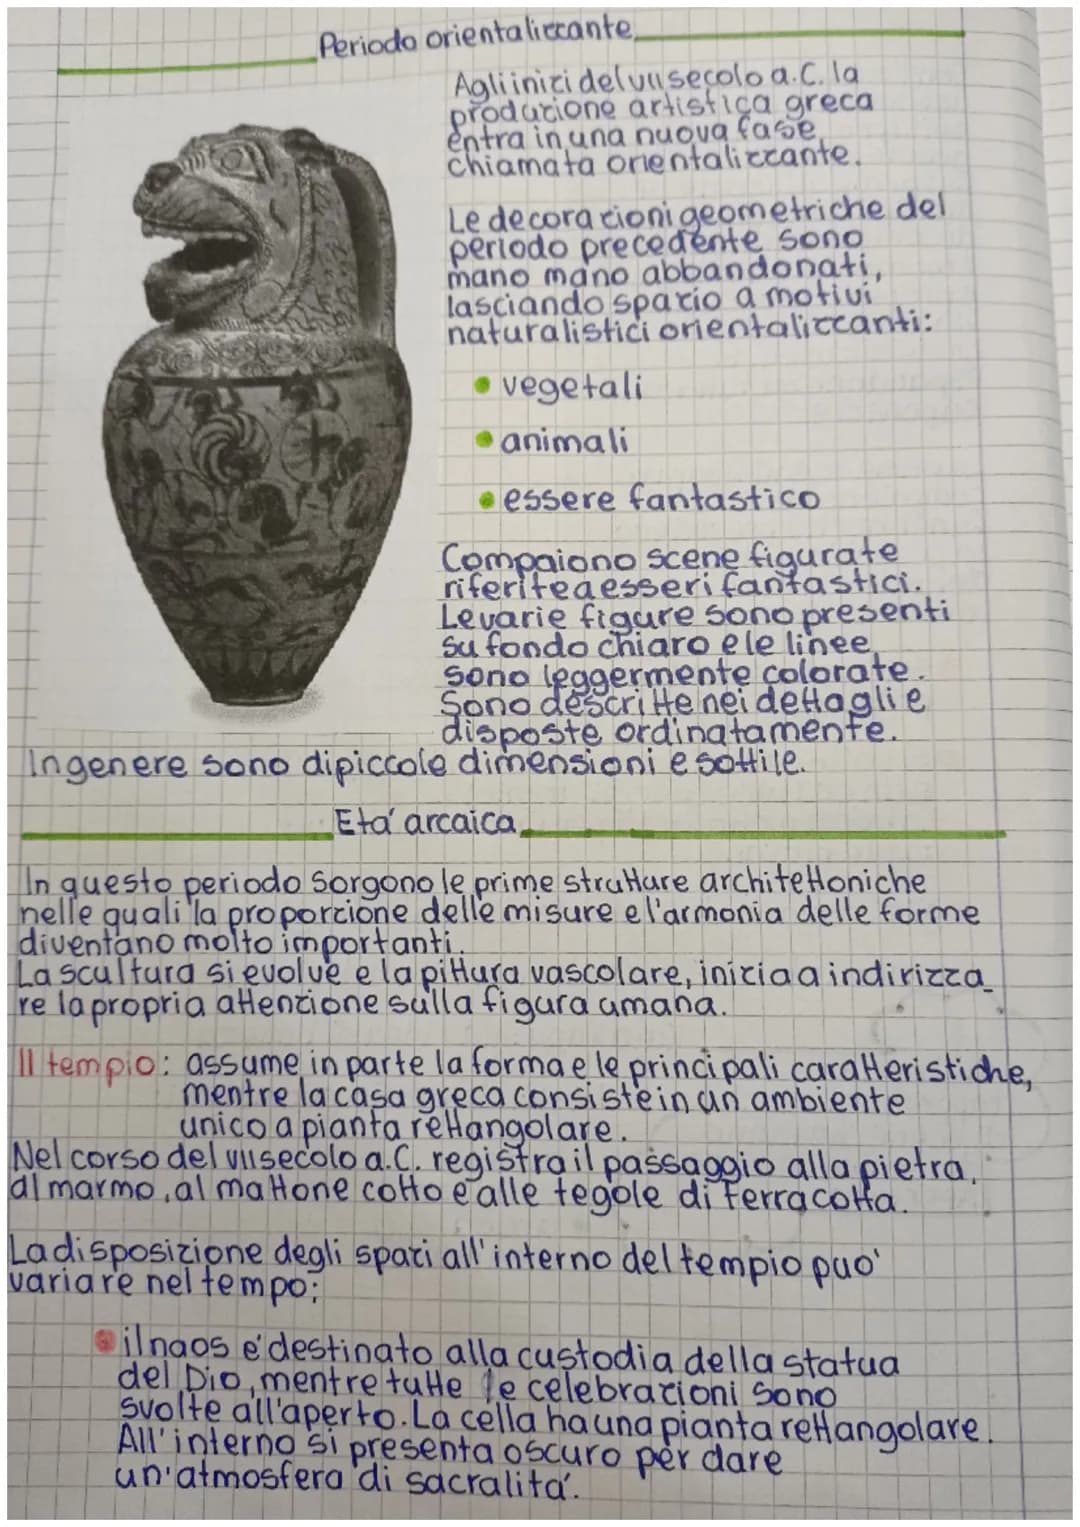 Periodo orientalizzante
Agli inizi del VII secolo a.C. la
produzione artistica greca
entra in una nuova fase
chiamata orientalizzante.
Le decorazioni geometriche del
periodo precedente sono
mano mano abbandonati,
lasciando spazio a motivi
naturalistici orientalizzanti:
• vegetali
• animali
• essere fantastico
Compaiono scene figurate
riferite a esseri fantastici.
Le varie figure sono presenti
su fondo chiaro e le linee
sono leggermente colorate.
Sono descritte nei dettagli e
disposte ordinatamente.
In genere sono di piccole dimensioni e sottile.
Eta' arcaica
In questo periodo sorgono le prime strutture architettoniche
nelle quali la proporzione delle misure e l'armonia delle forme
diventano molto importanti.
La scultura si evolve e la pittura vascolare, inizia a indirizza_
re la propria attenzione sulla figura umana.
Il tempio: assume in parte la forma e le principali caratteristiche,
mentre la casa greca consiste in un ambiente
unico a pianta rettangolare.
Nel corso del VII secolo a.C. registra il passaggio alla pietra,
al marmo, al mattone cotto e alle tegole di terracotta.
La disposizione degli spazi all'interno del tempio puo'
variare nel tempo;
• il naos e' destinato alla custodia della statua
del Dio, mentre tutte le celebrazioni sono
svolte all'aperto. La cella ha una pianta rettangolare.
All'interno si presenta oscuro per dare
un'atmosfera di sacralita'.